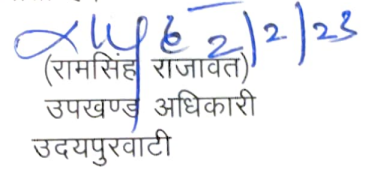 2/2/23
(रामसिंह राजावत)
उपखण्ड अधिकारी
उदयपुरवाटी